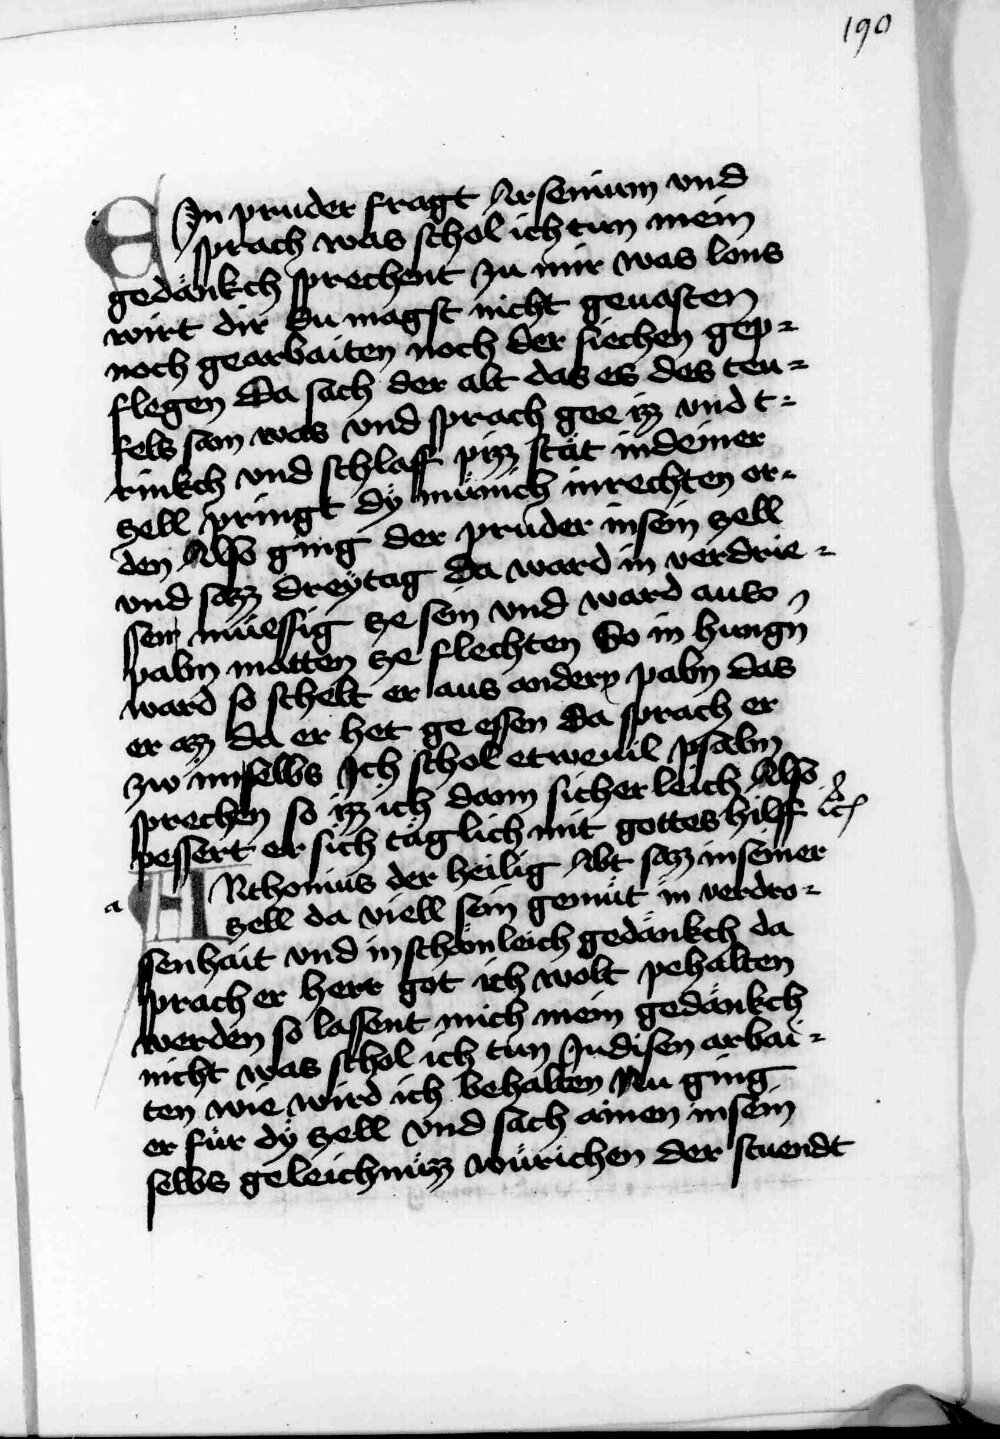 190
EIn pruder fragt Arsenium vnd
sprach was schol ich tun mein
gedänkch sprechent zu mir was lons
wirt dir du magst nicht geuasten
noch gearbaiten noch der siechen gep=
flegen Da sach der alt das es des teu=
fels sam was vnd sprach gee izz vnd t=
rinkch vnd schlaff pizz stät in deiner
zell pringt dÿ münich in rechten or=
den Also ging der pruder in sein zell
vnd sazz dreÿ tag da ward in verdrie=
ssen müessig ze sein vnd ward aus
palm matten ze flechten So in hungern
ward so schelt er aus andern palm das
er azz da er het geessen Da sprach er
zw im selbs Ich schol etweuil psalm
sprechen so izz ich dann sicherleich Also
pessert er sich täglich mit gottes hilff etc
a
ANthonius der heilig Abt sazz in seiner
zell da viell sein gemüt in verdro=
ssenhait vnd in schönleich gedänkch da
sprach er herr got ich wolt pehalten
werden so lassent mich mein gedänkch
nicht was schol ich tun In disen arbai=
ten wie wird ich behalten Nu ging
er für dÿ zell vnd sach ainen in sein
selbs geleichnüzz würichen der stuendt